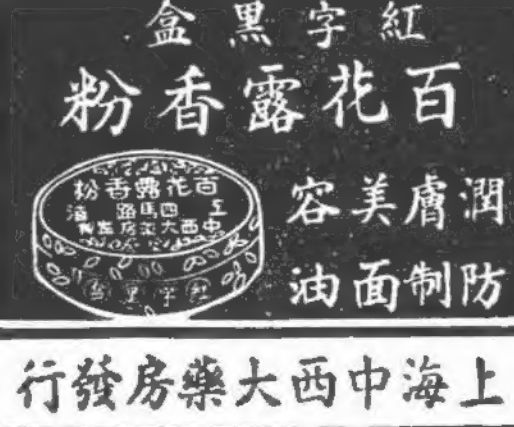 紅字黑盒
百花露香粉
潤膚美容
防制面油
百花露香粉
上四馬路海
中西大药房
紅字黑盒
上海中西大藥房發行